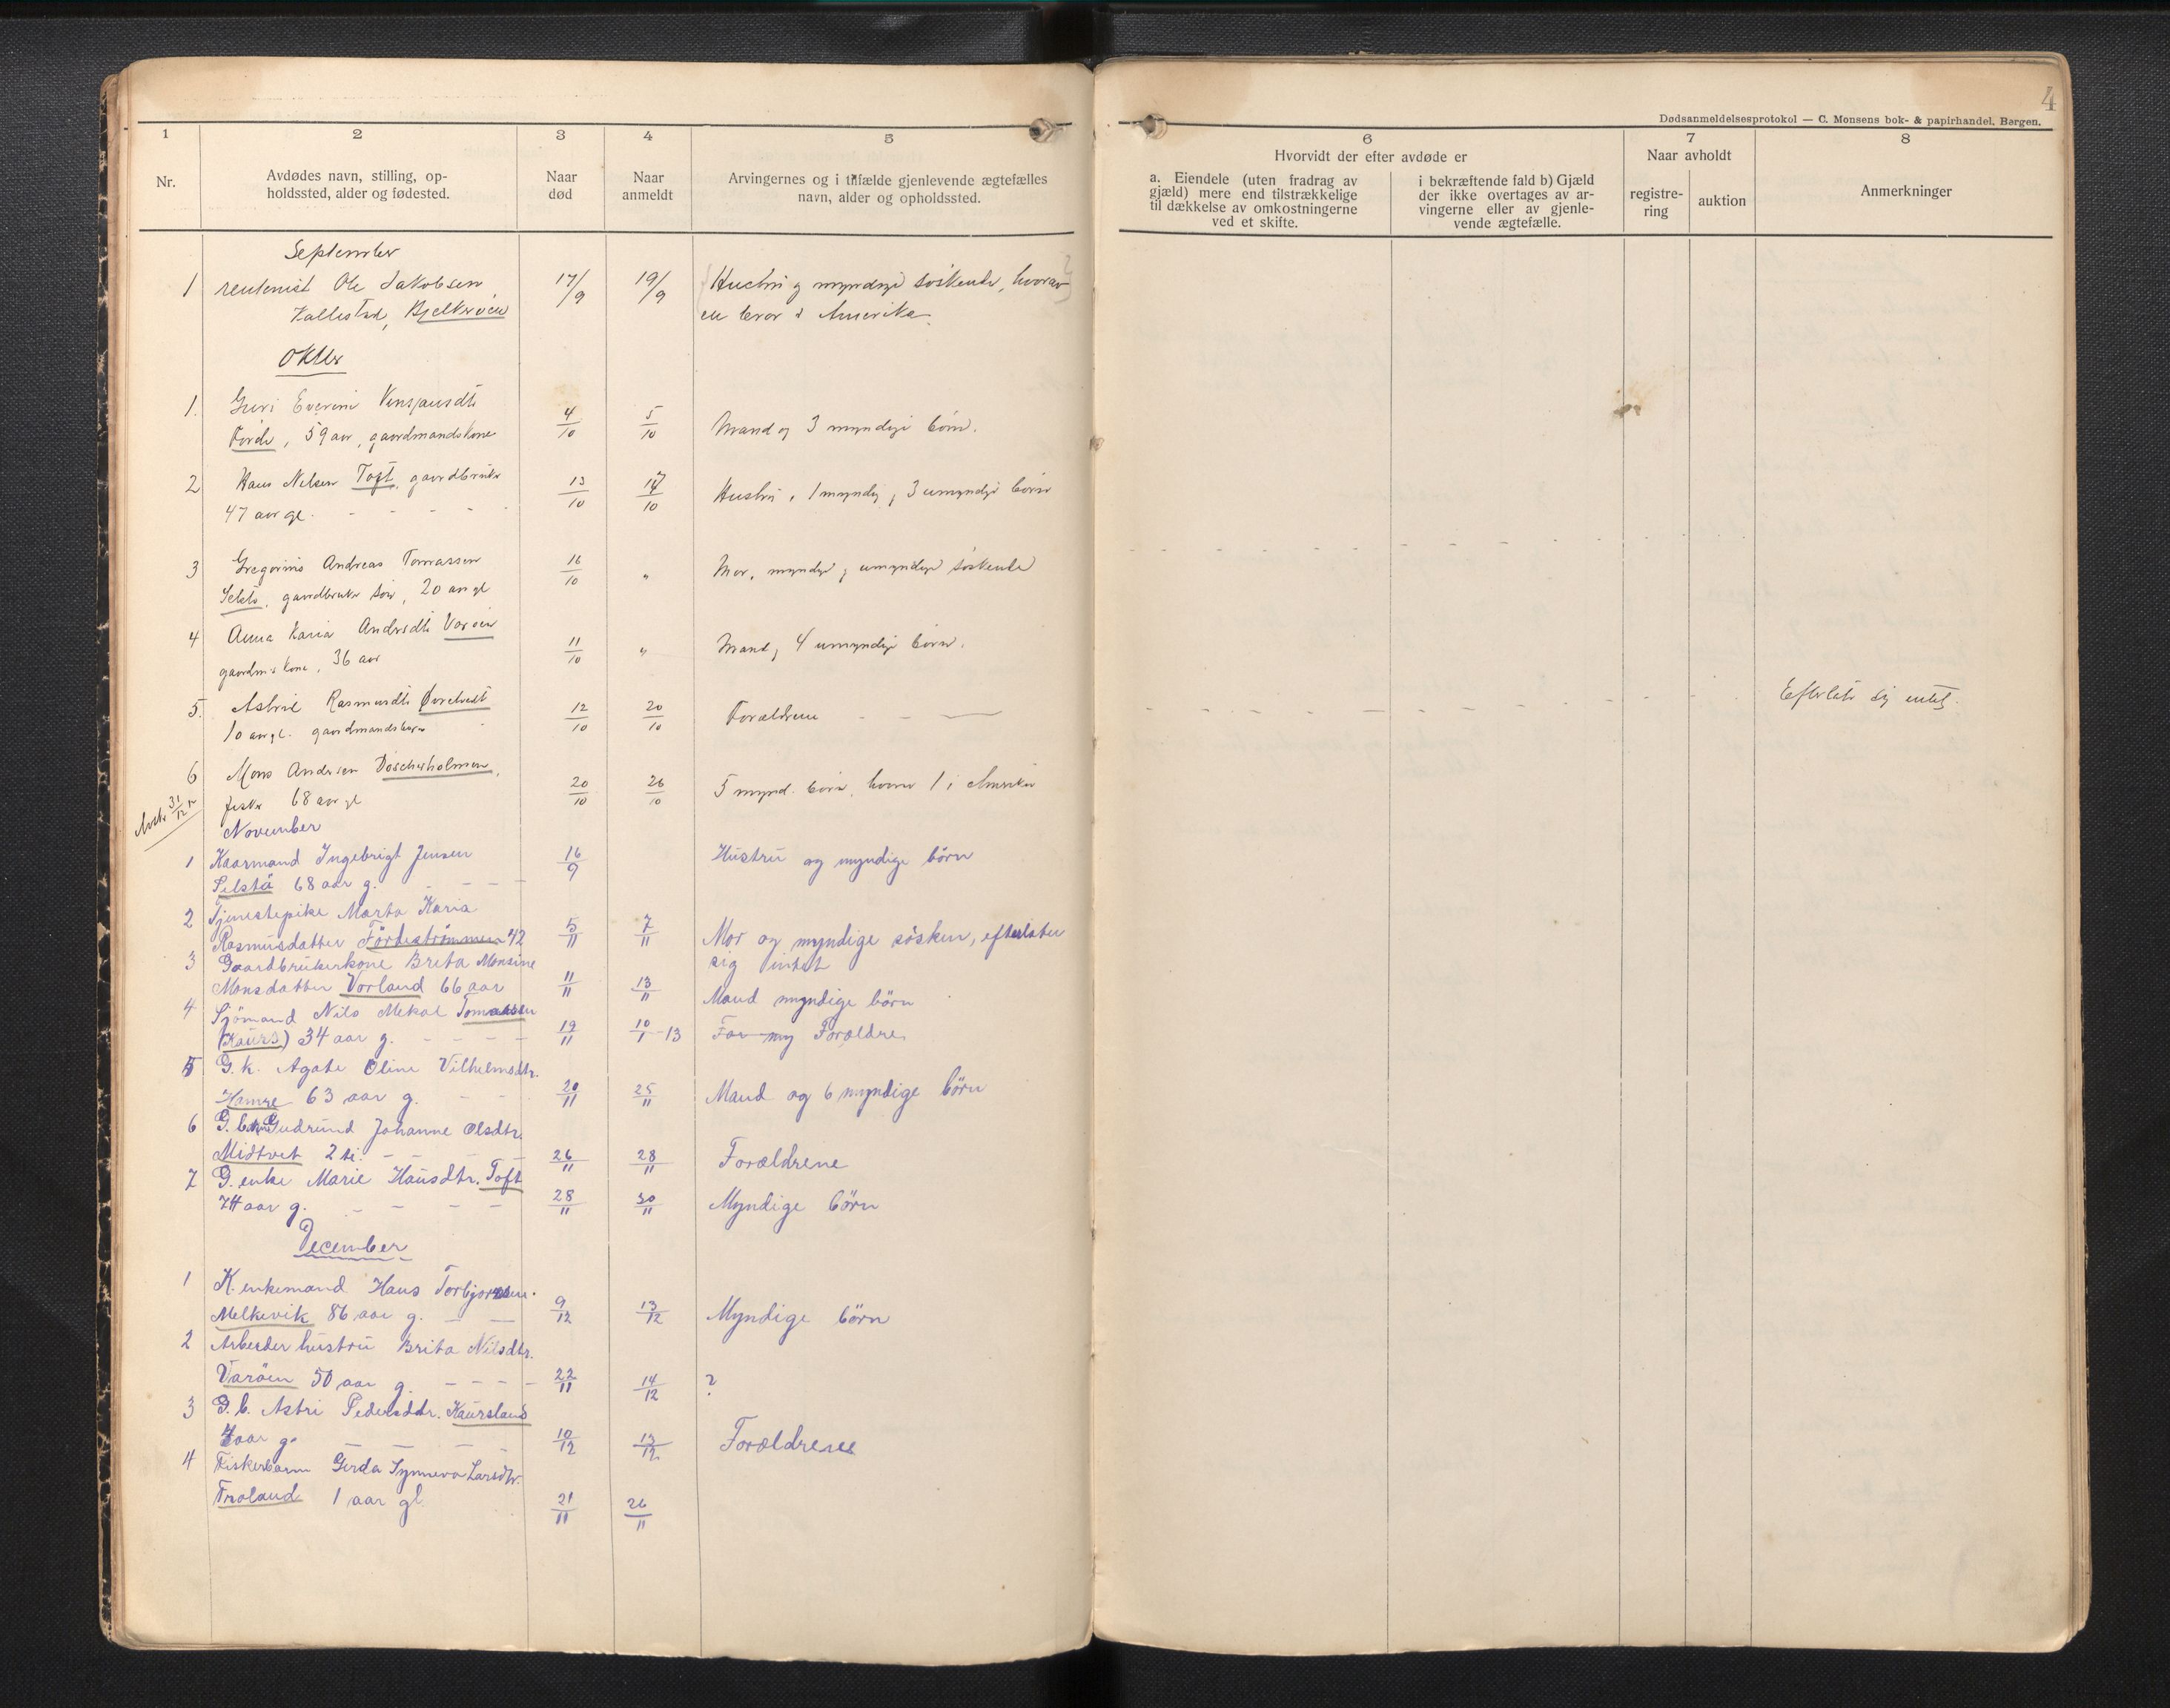 4
Dødsanmeldelsesprotokol — C. Monsens bok- & papirhandel, Bergen.
1 2 3 4 5 6 7 8
Nr.
Avdødes navn, stilling, op-
holdssted, alder og fødested.
Naar
død
Naar
anmeldt
Arvingernes og i tilfælde gjenlevende ægtefælles
navn, alder og opholdssted.
Hvorvidt der efter avdøde er
a. Eiendele (uten fradrag av
gjæld) mere end tilstrækkelige
til dækkelse av omkostningerne
ved et skifte.
i bekræftende fald b) Gjæld
der ikke overtages av ar-
vingerne eller av gjenle-
vende ægtefælle.
Naar avholdt
registre-
ring
auktion
Anmerkninger
September
1 rentenist Ole Jakobsen 17/9 19/9 Hustru og myndige søskende, hvorav
Kallestad, Bjelkerøen en bror i Amerika
Oktbr
1. Guri Everine
Førde, 59 aar, gaardmandskone 4/10 5/10 Mand og 3 myndige børn.
2 Hans Nilsen Toft, gaardbruker 13/10 17/10 Hustru, 1 myndig, 3 umyndige børn
47 aar gl. - - - -
3 Gregorius Andreas Tomassen 16/10 " Mor, myndige, umyndige søskende
gaardbruker søn, 20 aar gl
4 Anna Karia Andersdtr Varøen 11/10 " Mand, 4 umyndige børn.
gaardms kone, 36 aar
5. Astrid Rasmusdtr 12/10 20/10 Forældrene - - — Efterlate sig intet.
10 aar gl. gaardmandsbarn
6 Mons Andersen 20/10 26/10 5 mynd. børn, hvorav 1 i Amerika
fisker 68 aar gl
31/12 12
November
1 Kaarmand Ingebrigt Jensen 16/9 Hustru og myndige børn
Selstø 68 aar g. - - -
2 Tjenestepike Marta Karia
Rasmusdatter Fördeströmmen 42 5/11 7/11 Mor og myndige søsken, efterlater
sig intet
3 Gaardbrukerkone Brita Monsine
Monsdatter Vorland 66 aar 11/11 13/11 Mand myndige børn
4 Sjömand Nils Mikal Tomassen
(Kaurs) 34 aar g. - - - - 19/11 10/1-13 Far my Forældre
5 G.k. Agate Oline Vilhelmsdtr.
Hamre 63 aar g. - - 20/11 25/11 Mand og 6 myndige børn
6 G.barn Gudrund Johanne Olsdtr.
Midtvet 2 ti. - - - - 26/11 28/11 Forældrene
7 G. enke Marie Hansdtr. Toft
74 aar g. - - - - 28/11 30/11 Myndige børn
December
1 K. enkemand Hans Torbjørnsen.
Melkevik 86 aar g. — — 9/12 13/12 Myndige börn
2 Arbeider hustru Brita Nilsdtr.
Varöen 50 aar g. - - - - 22/11 14/12 ?
3 G.b. Astri Pedersdtr. Kaursland
7 aar g. - - - 10/12 13/12 Forældrene
4 Fiskerbarn Gerda Synneva Larsdtr.
Troland 1 aar gl. 21/11 26/11